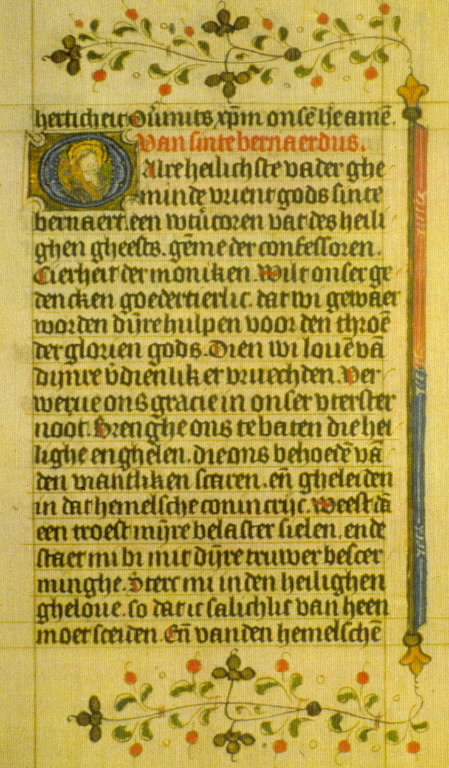 herticheit Oūmits xp̄m onsē h̄e amē.
Van sinte bernaerdus.
Alre heilichste vader ghe
minde vrient gods sinte
bernaert. een wtūcoren vat des heili
ghen gheests. gēme der confessoren.
Cierheit der moniken. Wilt onser ge
dencken goedertierlic. dat wi gewaer
worden dijnre hulpen voor den throē
der glorien gods. Dien wi louē vā
dijnre v̄dienliker vruechden. Ver
werue ons gracie in onser vterster
noot. Brenghe ons te baten die hei
lighe enghelen. die ons behoedē vā
den viantliken scaren. eñ gheleiden
in dat hemelsche conincrijc. Weest dā
een troest mijnre belaster sielen. ende
staet mi bi mit dijnre truwer bescer
minghe. Sterc mi in den heilighen
gheloue. so dat ic salichlic van heen
moet sceiden. Eñ van den hemelschē